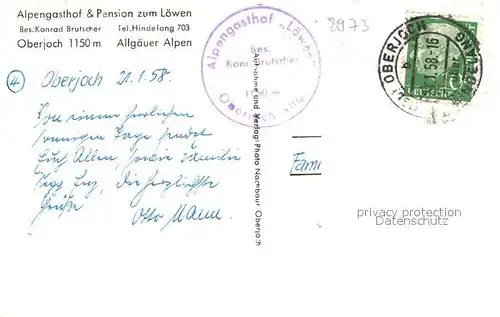 Alpengasthof & Pension zum Löwen
Bes. Konrad Brutscher Tel. Hindelang 703
Oberjoch 1150 m Allgäuer Alpen
Alpengasthof „Löwen“
Bes.
Konr. Brutscher
1150 m
Oberjoch Allg.
8973
OBERJOCH
1.58-16
4 Oberjoch 21.1.58.
einem herrlichen
sonnigen Tage sendet
Euch Allen, sowie Familie
die herzlichste
Grüße
Otto
Aufnahme und Verlag: Photo Nachbaur Oberjoch
Fami
privacy protection
Datenschutz